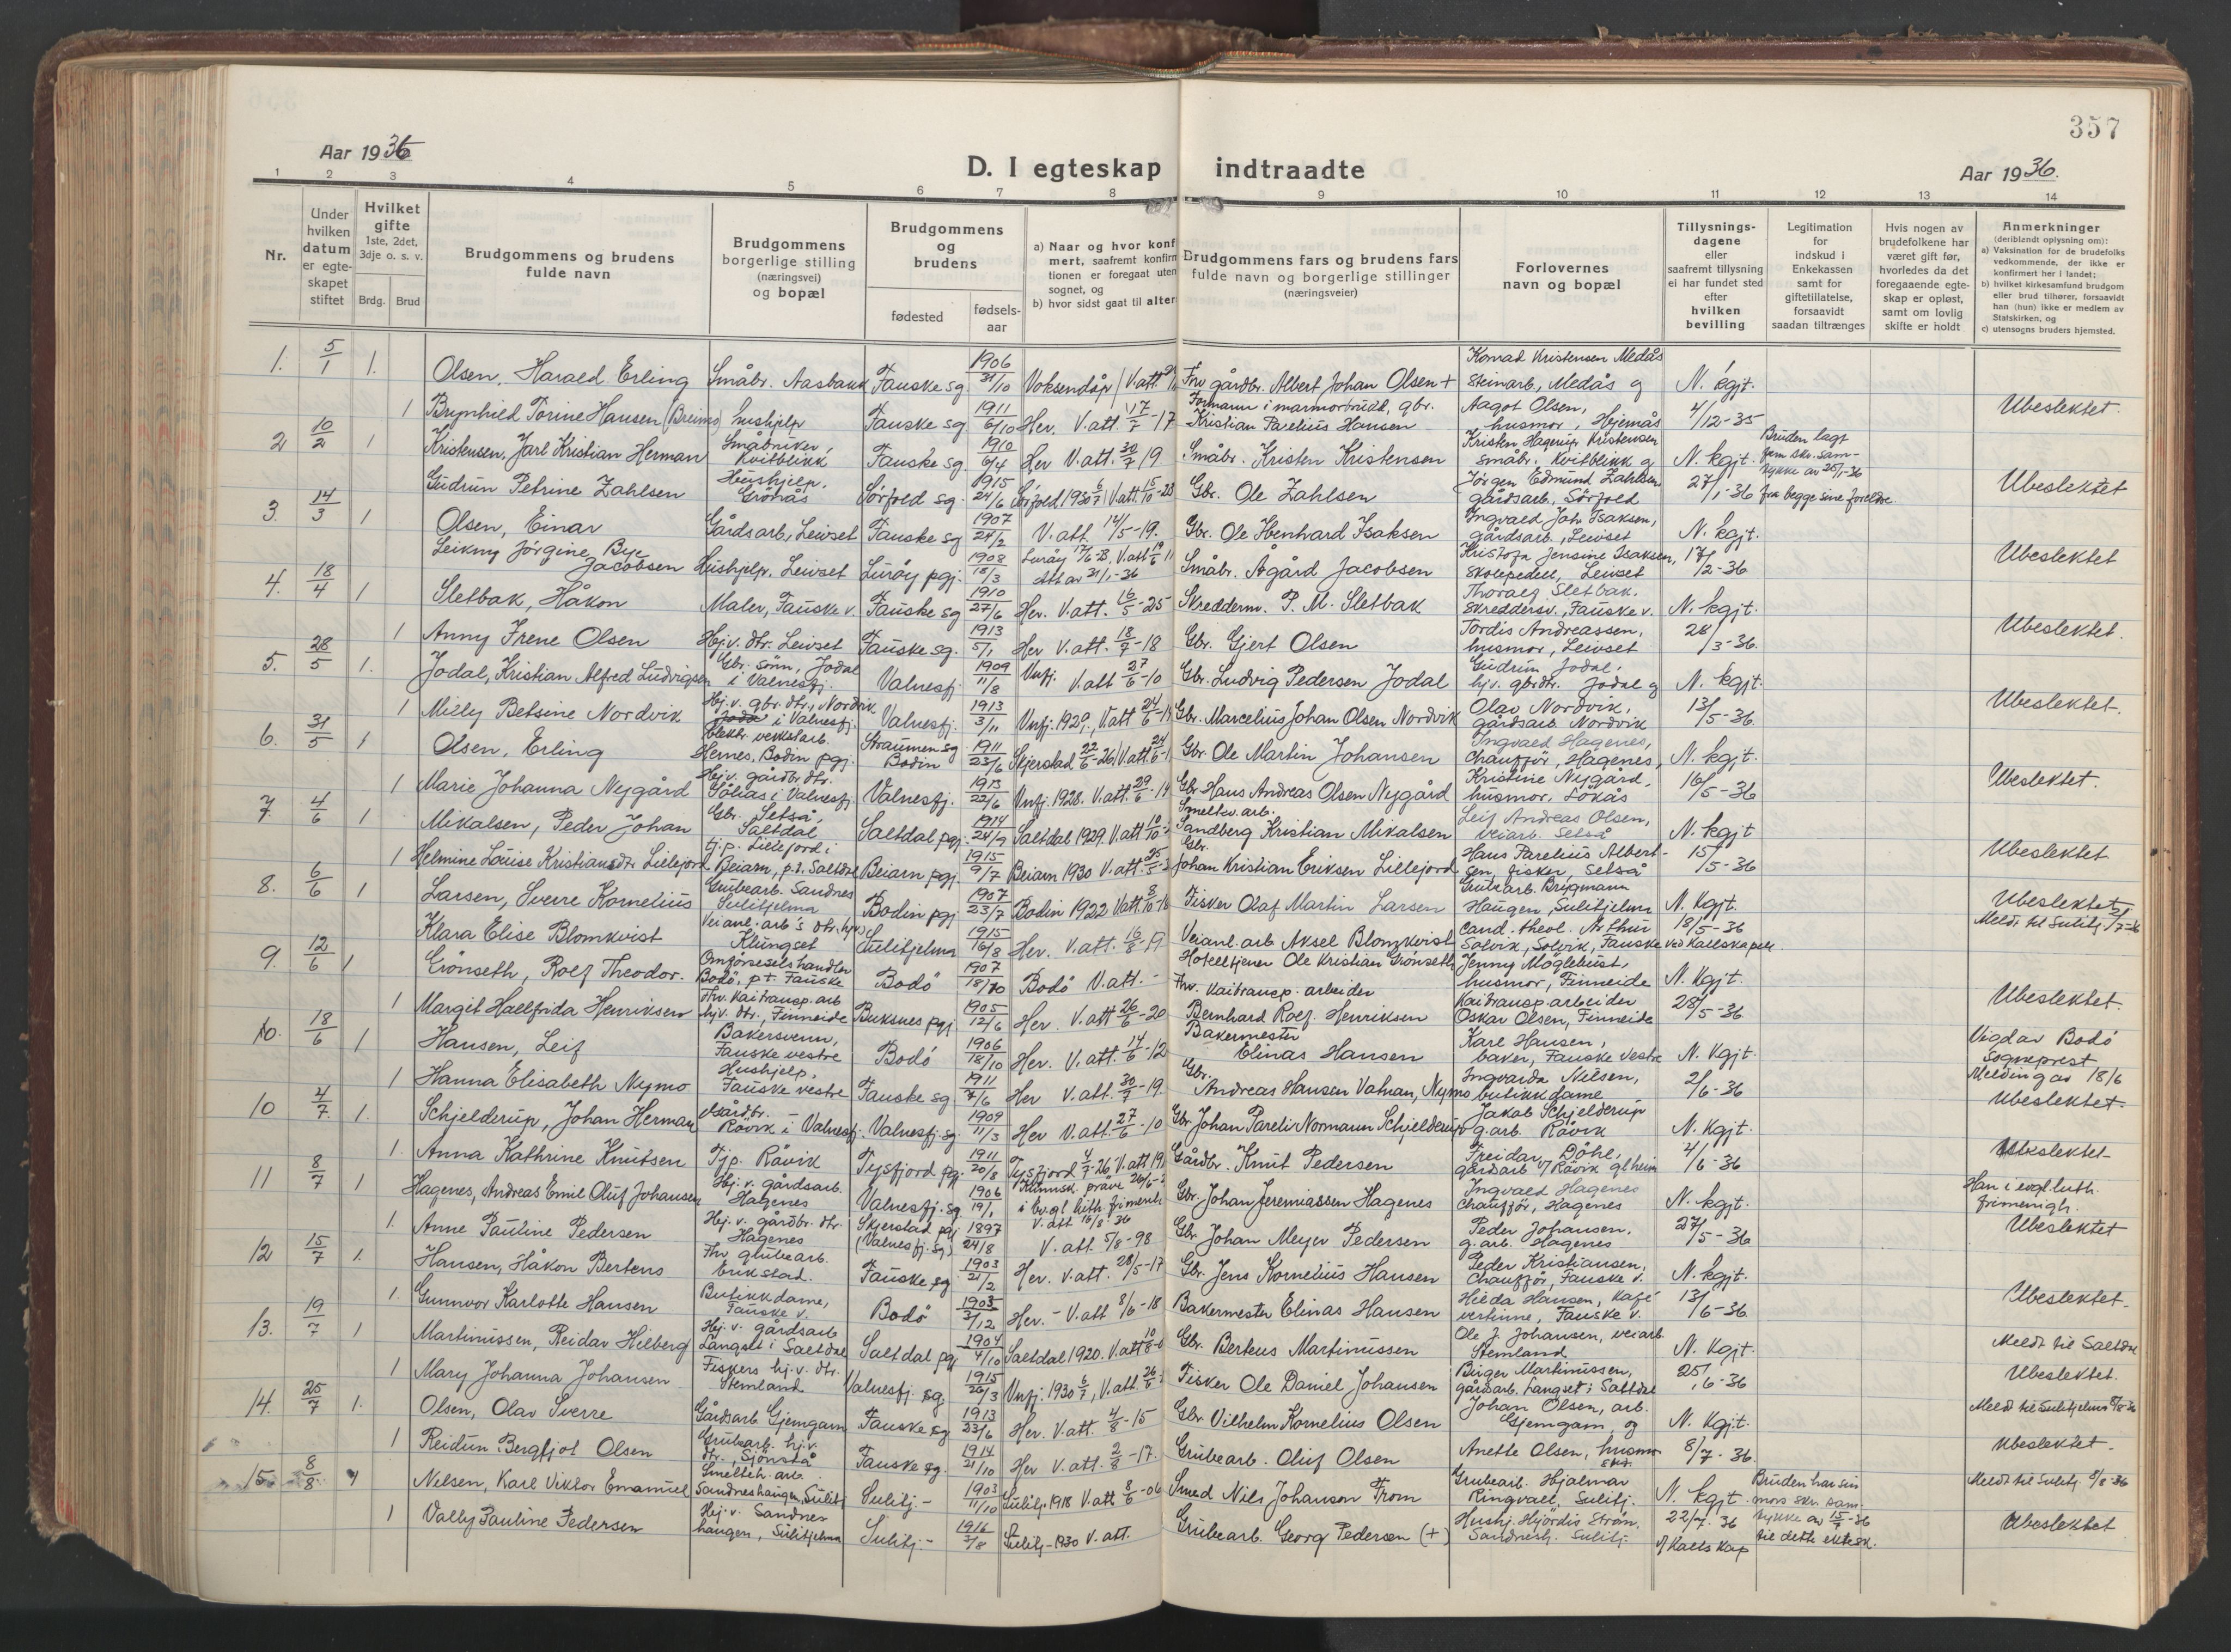 357
Aar 1936
D. I egteskap indtraadte
Aar 1936.
1 2 3 4 5 6 7 8 9 10 11 12 13 14
Nr.
Under hvilken datum er egteskapet stiftet
Hvilket gifte 1ste, 2det, 3dje o. s. v.
Brdg. Brud
Brudgommens og brudens fulde navn
Brudgommens borgerlige stilling (næringsvei) og bopæl
Brudgommens og brudens
fødested
fødsels-aar
a) Naar og hvor konf
mert, saafremt konfirm
tionen er foregaat uten
sognet, og
b) hvor sidst gaat til alter
Brudgommens fars og brudens fars fulde navn og borgerlige stillinger (næringsveier)
Forlovernes navn og bopæl
Tillysnings-dagene eller saafremt tillysning ei har fundet sted efter hvilken bevilling
Legitimation for indskud i Enkekassen samt for giftetillatelse, forsaavidt saadan tiltrænges
Hvis nogen av brudefolkene har været gift før, hvorledes da det foregaaende egte-skap er opløst, samt om lovlig skifte er holdt
Anmerkninger
(deriblandt oplysning om):
a) Vaksination for de brudefolks vedkommende, der ikke er konfirmert her i landet;
b) hvilket kirkesamfund brudgom eller brud tilhører, forsaavidt han (hun) ikke er medlem av Statskirken, og
c) utensogns bruders hjemsted.
1. 5/1 1. Olsen, Harald Erling Småbr. Aasbakk Fauske sg. 1906 31/10 Voksendåp V. att. Frv gårdbr. Albert Johan Olsen + Konrad Kristensen Medås steinarb., Medås g N. kgjt.
1 Brynhild Torine Hansen (Breimo) hushjelp Fauske sg 1911 6/10 Her. V. att. 17/7-17 Formann i marmorbrudd, gbr. Kristian Parelius Hansen Aagot Olsen, husmor, Hjemås 4/12-35 Ubeslektet.
2 10/2 1 Kristensen, Jarl Kristian Herman Småbruker, Kvitblikk Fauske sg. 1910 6/4 Her V. att. 30/7 19 Småbr. Kristen Kristensen Kristen Hagerup Kristensen småbr. Kvitblikk g N. kgjt. Bruden lagt frem skr. sam-tykke av 25/1-36
Gudrun Petrine Zahlsen Hushjelp. Grönås Sörfold sg. 1915 24/6 Sörfold 1930 V. att. 15/10-28 Gbr. Ole Zahlsen Jörgen Edmund Zahlsen gårdsarb. Sörfold 27/1-36 fra begge sine foreldre Ubeslektet
3. 14/3 1 Olsen, Einar Gårdsarb., Leivset Fauske sg 1907 24/2 V. att. 14/5-19. Gbr. Ole Ebenhard Isaksen Ingvald Joh. Isaksen, gårdsarb., Leivset N. kgjt.
Leikny Jörgine Bye Jacobsen Hushjelp. Leivset Luröy pgj. 1908 18/3 Luröy 17/6-23, V. att. Att av 21/1-36 Småbr. Ågård Jacobsen Kristofa Jensine Isaksen, skolepedell, Leivset 17/2-36 Ubeslektet
4. 18/4 1 Sletbak, Håkon Maler, Fauske v. Fauske sg 1910 27/6 Her. V. att. 16/5-25 Skredderm. P. M. Sletbak Thoralf Sletbak. skreddersv., Fauske v. N. kgjt.
1 Anny Irene Olsen Hj.v. dtr. Leivset Fauske sg. 1913 5/1 Her V. att. 18/7-18 Gbr. Gjert Olsen Tordis Andreassen, husmor, Leivset 28/3-36. Ubeslektet.
5. 28/5 1. Jodal, Kristian Alfred Ludvigsen Gbr. sönn, Jodal i Valnesfj. Valnesfj. 1909 11/8 Vnfj. V. att 27/6-10 Gbr. Ludvig Pedersen Jodal Gudrun Jodal, hj.v. gbrdtr. Jodal g N. kgjt.
1 Milly Betsine Nordvik Hj.v. gbr. dtr., Nordvik i Valnesfj. Valnesfj. 1913 3/11 Vnfj. 1929., V. att 24/6 Gbr. Marcelius Johan Olsen Nordvik Olav Nordvik, gårdsarb Nordvik 13/5-36. Ubeslektet.
6. 31/5 1 Olsen, Erling Elektr. verkstarb. Hernes, Bodin pgj. Straumen sg Bodin 1911 23/6 Skjerstad 22/6-26 V. att. 24/6 Gbr. Ole Martin Johansen Ingvald Hagenes, Chauffør, Hagenes, N. kgjt.
1 Marie Johanna Nygård Hj.v. gårdbr. dtr. i Valnesfj. Valnesfj. 1913 22/6 Vnfj. 1928. V. att. 29/6-14 Gbr Hans Andreas Olsen Nygård Kristine Nygård, husmor. 16/5-36 Ubeslektet.
7. 4/6 1 Mikalsen, Peder Johan Gbr. Setså, Saltdal Saltdal pgj. 1914 24/9 Saltdal 1929. V. att Smeltev. arb. Sandberg Kristian Mikalsen Leif Andreas Olsen, veiarb. Setså N. kgjt
1 Helmine Louise Kristiansdtr Lillefjord tj.p. Lillefjord i Beiarn, p.t. Saltdal Beiarn pgj. 1915 9/7 Beiarn 1930 V. att. 25/5 Gbr. Johan Kristian Eriksen Lillefjord Hans Parelius Albert-sen, fisker, Setså 15/5-36 Ubeslektet
8. 6/6 1 Larsen, Sverre Kornelius Grubearb. Sandnes Sulitjelma Bodin pgj 1907 23/7 Bodin 1922 V. att. Fisker Olaf Martin Larsen Grubearb. Brigmann Haugen, Sulitjelma N. Kgjt. Ubeslektet
Klara Elise Blomkvist Veianl. arb's dtr. hjv. Klungset Sulitjelma 1915 16/8 Her. V. att. 16/8-17 Veianl. arb Aksel Blomkvist Cand. theol. Arthur Solvik, Solvik, Fauske 18/5-36 ved Kallskapell. Meldt til Sulitj.
9. 12/6 1 Grönseth, Rolf Theodor. Omförselshandler Bodö, p.t. Fauske Bodö 1907 18/10 Bodö V. att. - Hotelltjener Ole Kristian Grönseth Jenny Möglebust, husmor, Finneide N. Kgjt.
1 Margit Hallfrida Henriksen Frv. kaitransp. arb hjv. dtr., Finneide Buksnes pgj 1905 12/6 Her. V. att 26/6-20 Frv. Kaitransp. arbeider Bernhard Rolf. Henriksen Kaitransp. arbeider Oskar Olsen, Finneide 28/5-36 Ubeslektet.
10. 18/6 1 Hansen, Leif Bakersvenn, Fauske vestre Bodö 1906 18/10 Her. V. att. 14/6-12 Bakermester Elinas Hansen Karl Hansen, baker, Fauske vestre N. Kgjt. Vigd av Bodö Sogneprest
1 Hanna Elisabeth Nymo Hushjelp, Fauske vestre Fauske sg 1911 7/6 Her V. att. 30/7-19. Gbr. Andreas Hansen Vatnan, Nymo Ingvarda Nilsen, butikkdame 2/6-36 Melding av 18/6 Ubeslektet.
10 4/7. 1. Schjelderup, Johan Herman Gårdbr. Rövik i Valnesfj. Valnesfj. sg. 1909 11/3 Her V. att. 27/6-10 Gbr. Johan Pareli Normann Schjelderup Jakob Schjelderup g. arb. Rövik N. Kgjt.
1. Anna Kathrine Knutsen Tjp. Rövik Tysfjord pgj. 1911 20/8 Tysfjord 4/7-26 V. att Gårdbr. Knut Pedersen Freidar Döhl, gårdsarb v/ Rövik glheim 4/6-36 Ubeslektet
11 8/7 1 Hagenes, Andreas Emil Oluf Johansen Hj.v. gårdsarb. Hagenes Valnesfj. sg 1906 19/1 i Ev. gl luth. frimenh V. att 16/8 36 Gbr. Johan Jeremiassen Hagenes Ingvald Hagenes Chauffør, Hagenes N. kgjt. Han i evgl. luth. frimenigh.
1. Anne Pauline Pedersen Hj. v. gårdbr. dtr. Hagenes Skjerstad pgj (Valnesfj. sg) 1897 24/8 V. att. 5/8-98 Gbr Johan Meyer Pedersen Peder Johansen. g. arb. Hagenes 27/5-36 Ubeslektet
12 15/7 1. Hansen, Håkon Bertens Frv grubearb. Erikstad. Fauske sg 1903 21/2 Her. V. att. 28/5-17 Gbr. Jens Kornelius Hansen Peder Kristiansen, Chauffør, Fauske v. N. kgjt.
1. Gunnvor Karlotte Hansen Butikkdame, Fauske v. Bodö 1903 3/12 Her. - V. att 8/6-18 Bakermester Elinas Hansen Hilda Hansen, Kafé vertinne, Fauske v. 13/6-36. Ubeslektet.
13. 19/7 1 Martinussen, Reidar Hilberg Hj. v. gårdsarb Langset i Saltdal Saltdal pgj 1904 4/10 Saltdal 1920. V. att Gbr. Berteus Martinussen Ole J. Johansen, veiarb. Stemland N. Kgjt. Meldt til Saltdal
1 Mary Johanna Johansen Fiskers hj.v. dtr. Stemland Valnesfj. sg. 1915 26/3 Vnfj. 1930 6/7, V. att. Fisker Ole Daniel Johansen Birger Martinussen, gårdsarb. Langset i Saltdal 25/6-36 Ubeslektet.
14. 25/7 1. Olsen, Olav Sverre Gårdsarb Gjemgam Fauske sg 1913 23/6 Her. V. att. 4/8-15 Gbr Vilhelm Kornelius Olsen Johan Olsen, arb. Gjemgam, og N. Kgjt. Meldt til Sulitjelma
1 Reidun Bergfjot Olsen Grubearb. hj.v. dtr., Sjönstå Fauske sg. 1914 21/10 Her V. att. 2/8-17. Grubearb. Oluf Olsen Anette Olsen, husmor 8/7-36. Ubeslektet.
15. 8/8 1 Nilsen, Karl Viktor Emanuel Smelteh. arb. Sandneshaugen, Sulitj Sulitj.- 1903 11/10 Sulitj. 1918 V. att 8/6-06 Smed Nils Johanson From Grubearb. Hjalmar Ringvall, Sulitj. N. kgjt. Bruden har sin mors skr. sam- Meldt til Sulitj. 8/8-36
1 Vally Pauline Pedersen Hj. v. Sandnes haugen, Sulitjelma Sulitj.- 1916 3/8 Sulitj.-1930 V. att. Grubearb. Georg Pedersen (+) Hushj. Hjördis Ström. Sandnesh. Sulitj. 22/7-36 v/ Kallskap tykke av 15/7-36 til dette ektesk. Ubeslektet